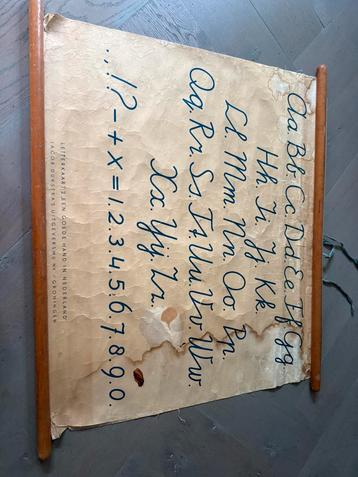 Aa.Bb.Cc.Dd.Ee.Ff.Gg.
Hh.Ii.Jj.Kk.
Ll.Mm.Nn.Oo.Pp.
Qq.Rr.Ss.Tt.Uu.Vv.Ww.
Xx.Yy.Zz.
.,.,!?-+x=1.2.3.4.5.6.7.8.9.0.
LETTERKAART: EEN GOEDE HAND IN NEDERLAND
JACOB DIJKSTRA'S UITGEVERSMIJ NV / GRONINGEN